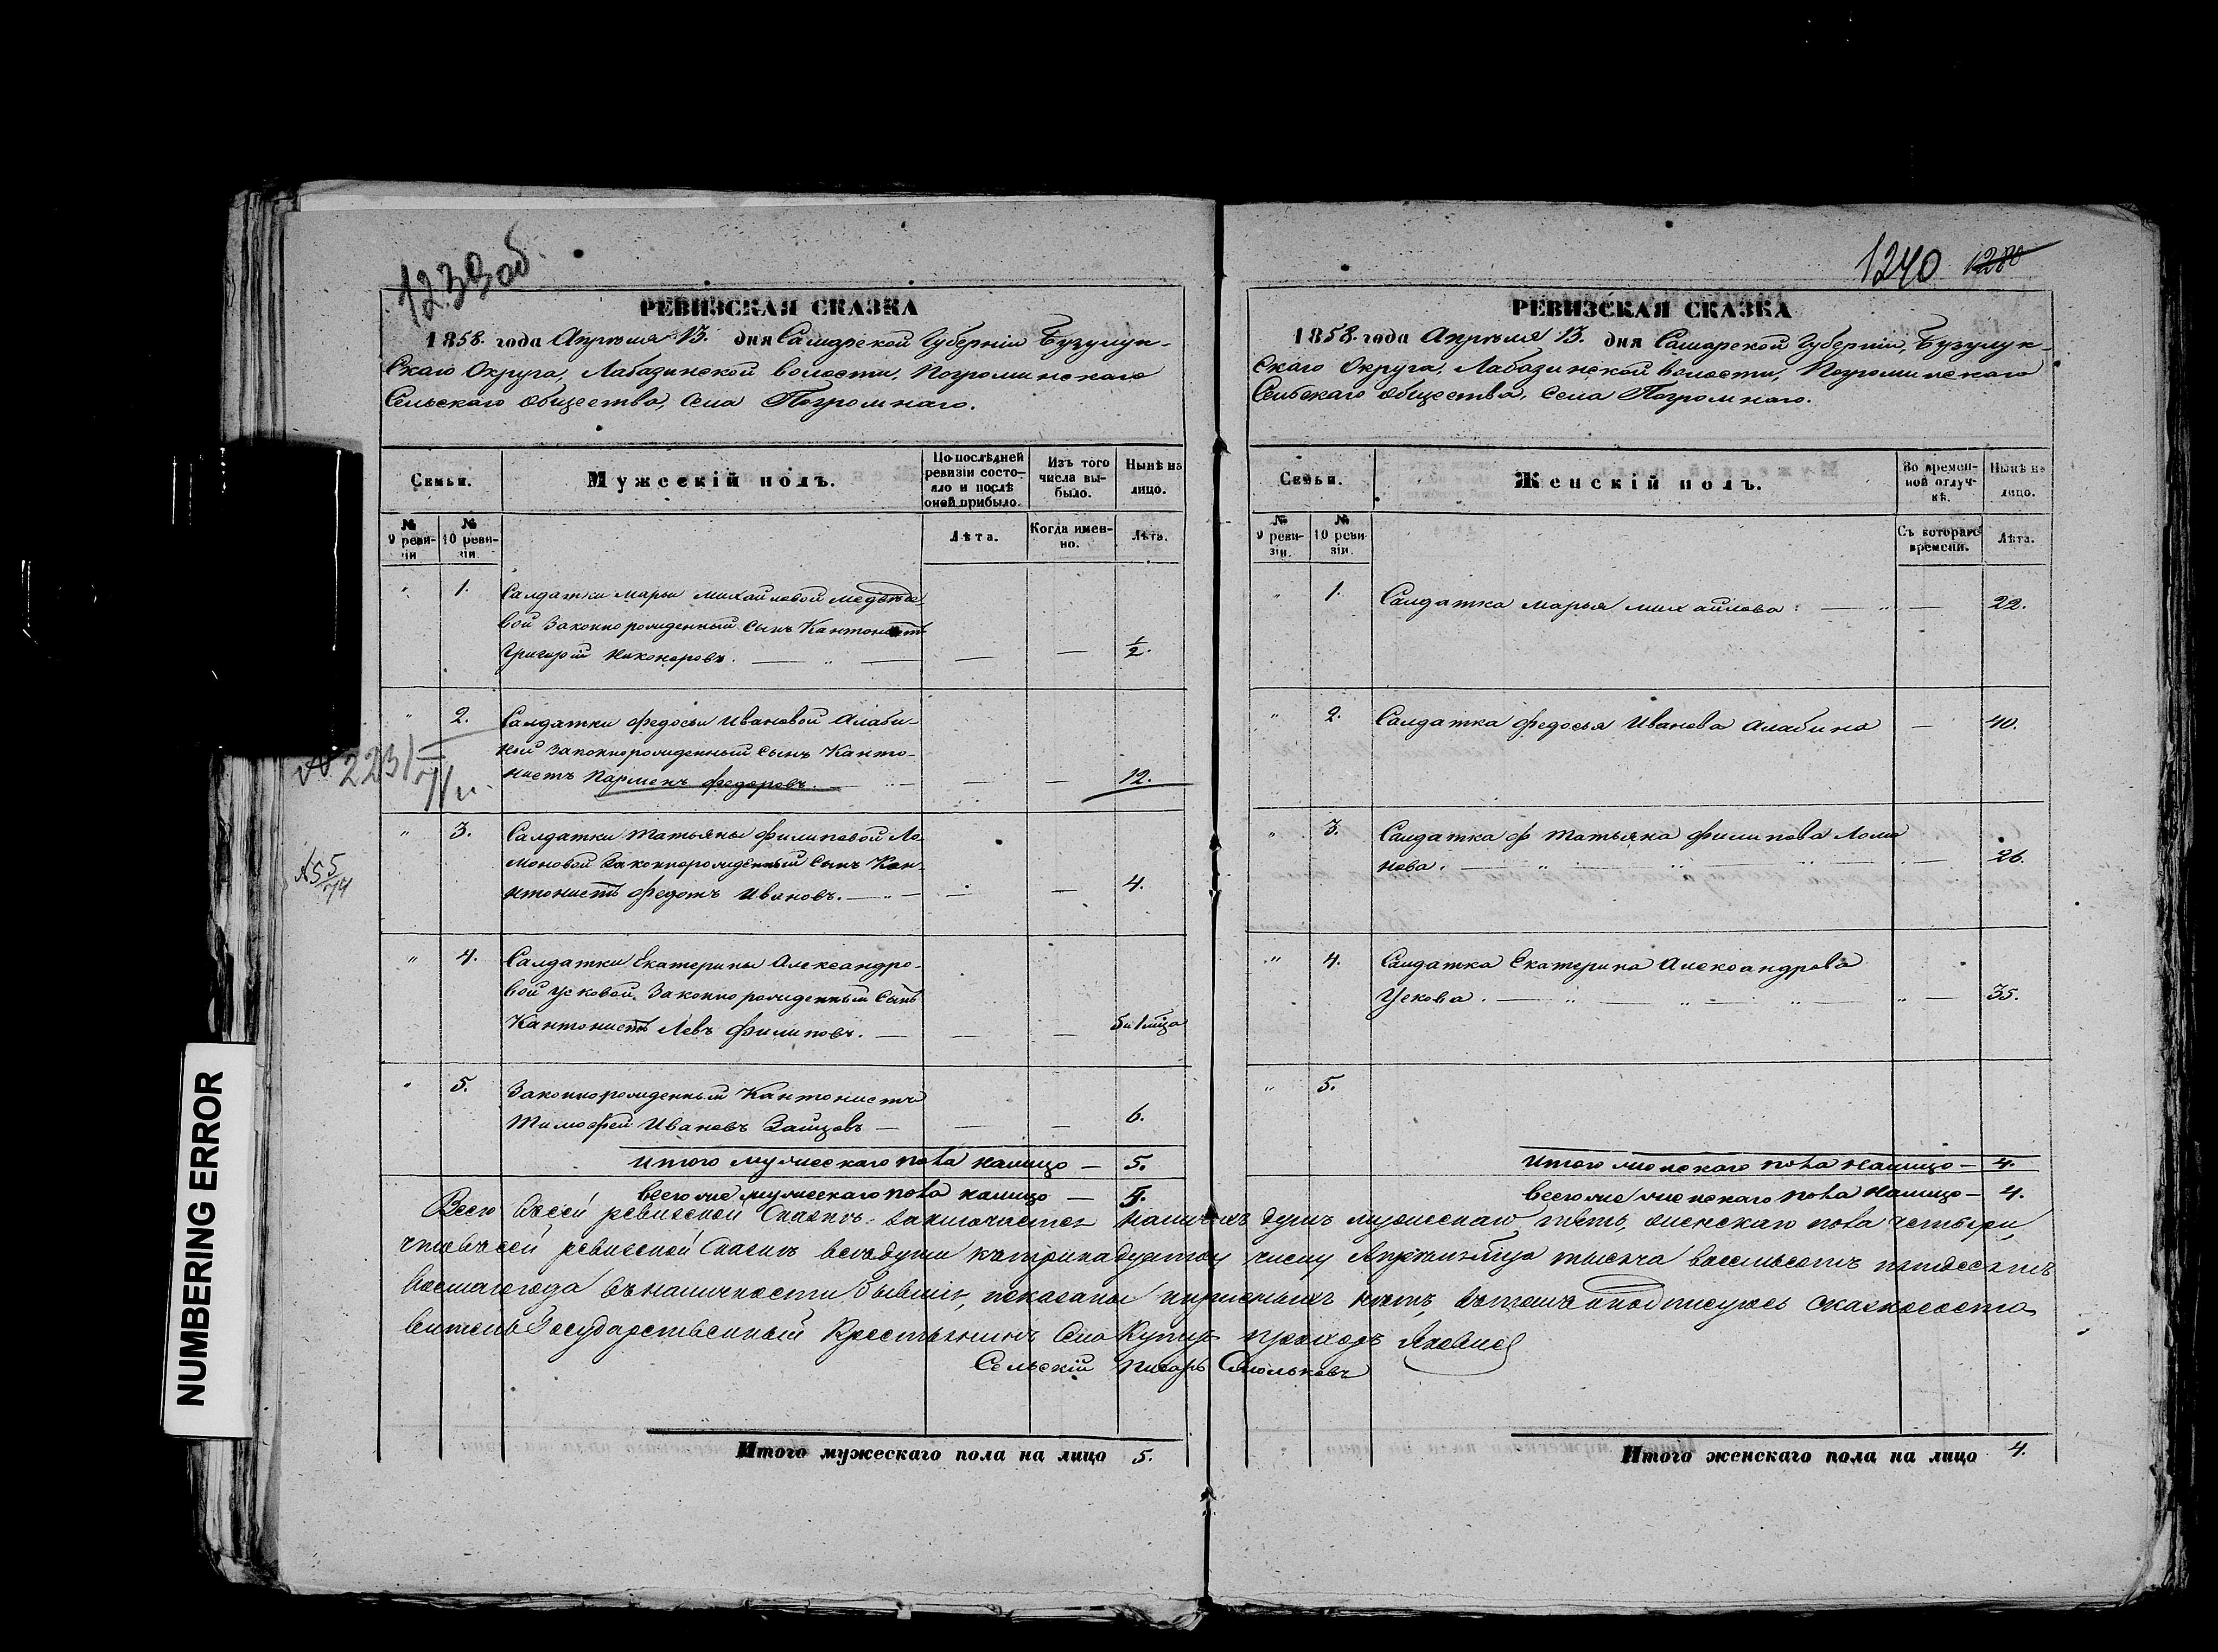 1239об.
РЕВИЗСКАЯ СКАЗКА
1858. года Апрѣля 13. дня Самарской Губерніи Бузулук-
скаго Округа, Лабазинской волости, Погроминскаго
Сельскаго общества, села Погромнаго.
Семьи.
Мужескій полъ.
По послѣдней ревизіи состо-
яло и послѣ оной прибыло.
Изъ того числа вы-
было.
Нынѣ на лицо.
№ 9 реви-
зіи
№ 10 реви-
зіи
Лѣта.
Когда имен-
но.
Лѣта.
" 1. Салдатки Марьи Михайловой
вой законнорожденный сынъ Кантонистъ
Григорій Никоноровъ. — " — — — ½.
" 2. Салдатки Федосьи Ивановой Алаби-
ной законнорожденный сынъ Канто-
нистъ Парменъ Федоровъ. — — — 12.
№ 2231
" 3. Салдатки Татьяны Филиповой Ло-
моновой законнорожденный сынъ Кан-
тонистъ Федотъ Ивановъ. — — — 4.
" 4. Салдатки Екатерины Александро-
вой Усковой законнорожденный сынъ
Кантонистъ Левъ Филиповъ. — — —
" 5. Законнорожденный Кантонистъ
Тимофей Ивановъ Зайцовъ — — — 6.
Итого мужескаго пола налицо — 5.
Всего же мужескаго пола налицо — 5.
1240 1280
РЕВИЗСКАЯ СКАЗКА
1858. года Апрѣля 13. дня Самарской Губерніи, Бузулук-
скаго Округа, Лабазинской волости, Погроминскаго
Сельскаго общества, села Погромнаго.
Семьи.
Женскій полъ.
Во времен-
ной отлуч-
кѣ.
Нынѣ на лицо.
№ 9 реви-
зіи.
№ 10 реви-
зіи.
Съ котораго времени.
Лѣта.
" 1. Салдатка Марья Михайлова. — " — 22.
" 2. Салдатка Федосья Иванова Алабина — 40.
" 3. Салдатка Ф Татьяна Филипова Ломо
нова. — " — " — " — 26.
" 4. Салдатка Екатерина Александрова
Ускова. — " — " — " — 35.
" 5.
Итого женскаго пола налицо — 4.
Всего же женскаго пола налицо — 4.
Всего въ сей ревизской Сказкѣ заключается наличныхъ душъ мужескаго пять, женскаго пола четыре,
что въ сей ревизской Сказкѣ всѣ души къ тринадцатому числу Апрѣля м-ца тысяча восемьсотъ пятдесятъ
восмаго года въ наличности бывшіе, показаны и прописныхъ нѣтъ, въ томъ и подписуюсь сказкососта-
витель Государственный Крестьянинъ
Сельскій писарь Смольковъ
Итого мужескаго пола на лицо 5.
Итого женскаго пола на лицо 4.
NUMBERING ERROR